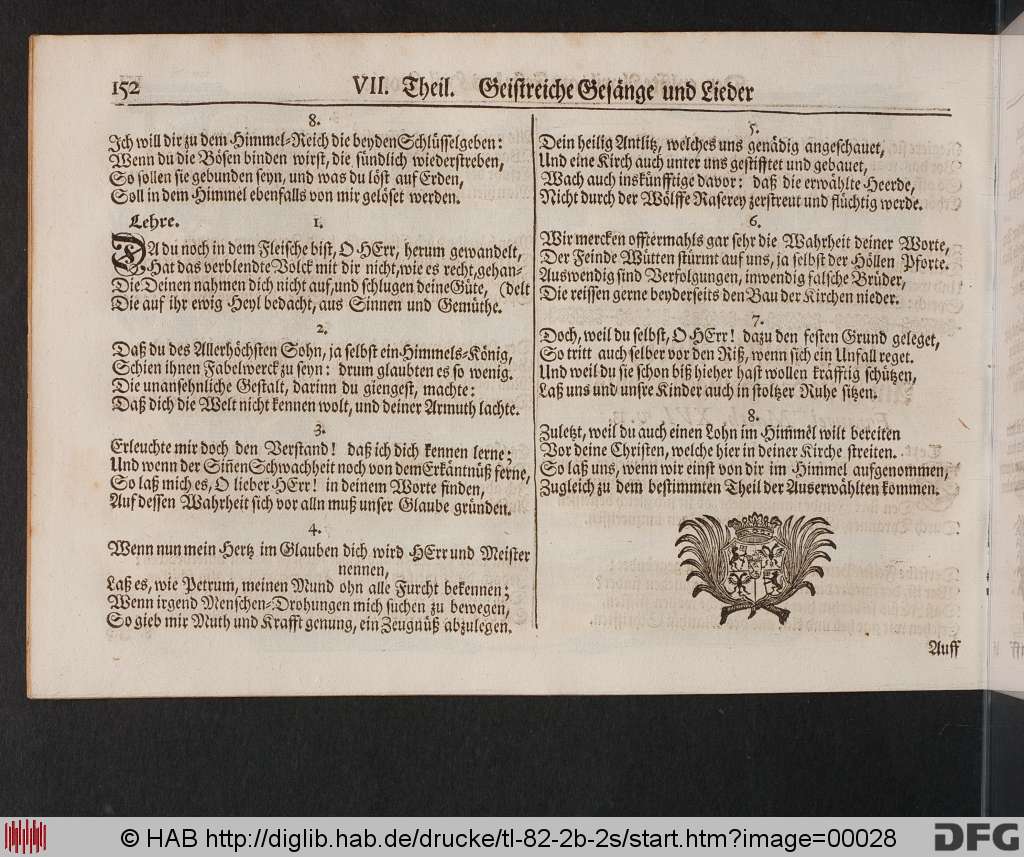 152
VII. Theil. Geistreiche Gesänge und Lieder
8.
Ich will dir zu dem Himmel-Reich die beyden Schlüssel geben:
Wenn du die Bösen binden wirst, die sündlich wiederstreben,
So sollen sie gebunden seyn, und was du löst auf Erden,
Soll in dem Himmel ebenfalls von mir gelöset werden.
Lehre. 1.
DA du noch in dem Fleische bist, O HErr, herum gewandelt,
Hat das verblendte Volck mit dir nicht, wie es recht, gehan-
Die Deinen nahmen dich nicht auf, und schlugen deine Güte, (delt
Die auf ihr ewig Heyl bedacht, aus Sinnen und Gemüthe.
2.
Daß du des Allerhöchsten Sohn, ja selbst ein Himmels-König,
Schien ihnen Fabelwerck zu seyn: drum glaubten es so wenig.
Die unansehnliche Gestalt, darinn du giengest, machte:
Daß dich die Welt nicht kennen wolt, und deiner Armuth lachte.
3.
Erleuchte mir doch den Verstand! daß ich dich kennen lerne;
Und wenn der Sin̄en Schwachheit noch von dem Erkäntnüß ferne,
So laß mich es, O lieber HErr! in deinem Worte finden,
Auf dessen Wahrheit sich vor alln muß unser Glaube gründen.
4.
Wenn nun mein Hertz im Glauben dich wird HErr und Meister
nennen,
Laß es, wie Petrum, meinen Mund ohn alle Furcht bekennen;
Wenn irgend Menschen-Drohungen mich suchen zu bewegen,
So gieb mir Muth und Krafft genung, ein Zeugnüß abzulegen.
5.
Dein heilig Antlitz, welches uns genädig angeschauet,
Und eine Kirch auch unter uns gestifftet und gebauet,
Wach auch inskünfftige davor: daß die erwählte Heerde,
Nicht durch der Wölffe Raserey zerstreut und flüchtig werde.
6.
Wir mercken offtermahls gar sehr die Wahrheit deiner Worte,
Der Feinde Wütten stürmt auf uns, ja selbst der Höllen Pforte.
Auswendig sind Verfolgungen, inwendig falsche Brüder,
Die reissen gerne beyderseits den Bau der Kirchen nieder.
7.
Doch, weil du selbst, O HErr! dazu den festen Grund geleget,
So tritt auch selber vor den Riß, wenn sich ein Unfall reget.
Und weil du sie schon biß hieher hast wollen kräfftig schützen,
Laß uns und unsre Kinder auch in stoltzer Ruhe sitzen.
8.
Zuletzt, weil du auch einen Lohn im Him̄el wilt bereiten
Vor deine Christen, welche hier in deiner Kirche streiten.
So laß uns, wenn wir einst von dir im Himmel aufgenommen,
Zugleich zu dem bestimmten Theil der Auserwählten kommen.
Auff
© HAB http://diglib.hab.de/drucke/tl-82-2b-2s/start.htm?image=00028
DFG